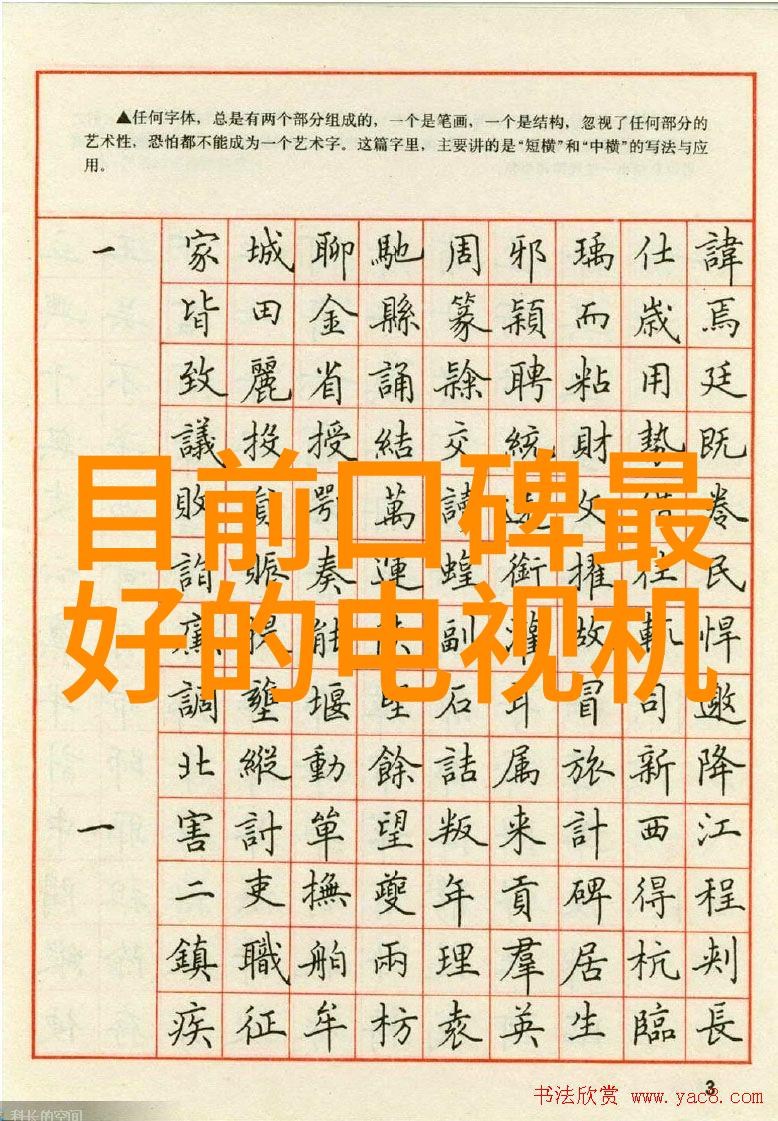 ▲任何字体，总是有两个部分组成的，一个是笔画，一个是结构，忽视了任何部分的
艺术性，恐怕都不能成为一个艺术字。这篇字里，主要讲的是“短横”和“中横”的写法与应
用。
一 家 城 聊 馳 周 邪 瑀 仕 諱
皆 田 金 縣 篆 穎 而 歲 焉
致 麗 省 誦 隸 聘 粘 用 廷
議 投 授 結 交 統 財 勢 既
目前口碑最
好的电视机
敗 鄂 萬 讀 文 卷
詣 賑 奏 連 蝗 銜 擢 住 民
能 副 灌 故 悍
調 壅 堰 石 耳 冒 司 邀
北 縱 動 餘 詰 属 旅 新 降
一 害 討 單 望 叛 来 計 西 江
二 吏 撫 夔 年 貢 碑 得 程
鎮 職 舶 兩 理 羣 居 杭 剌
疾 征 牟 枋 袁 英 生 臨 長
3
书法欣赏 www.yac8.com
科长的空间